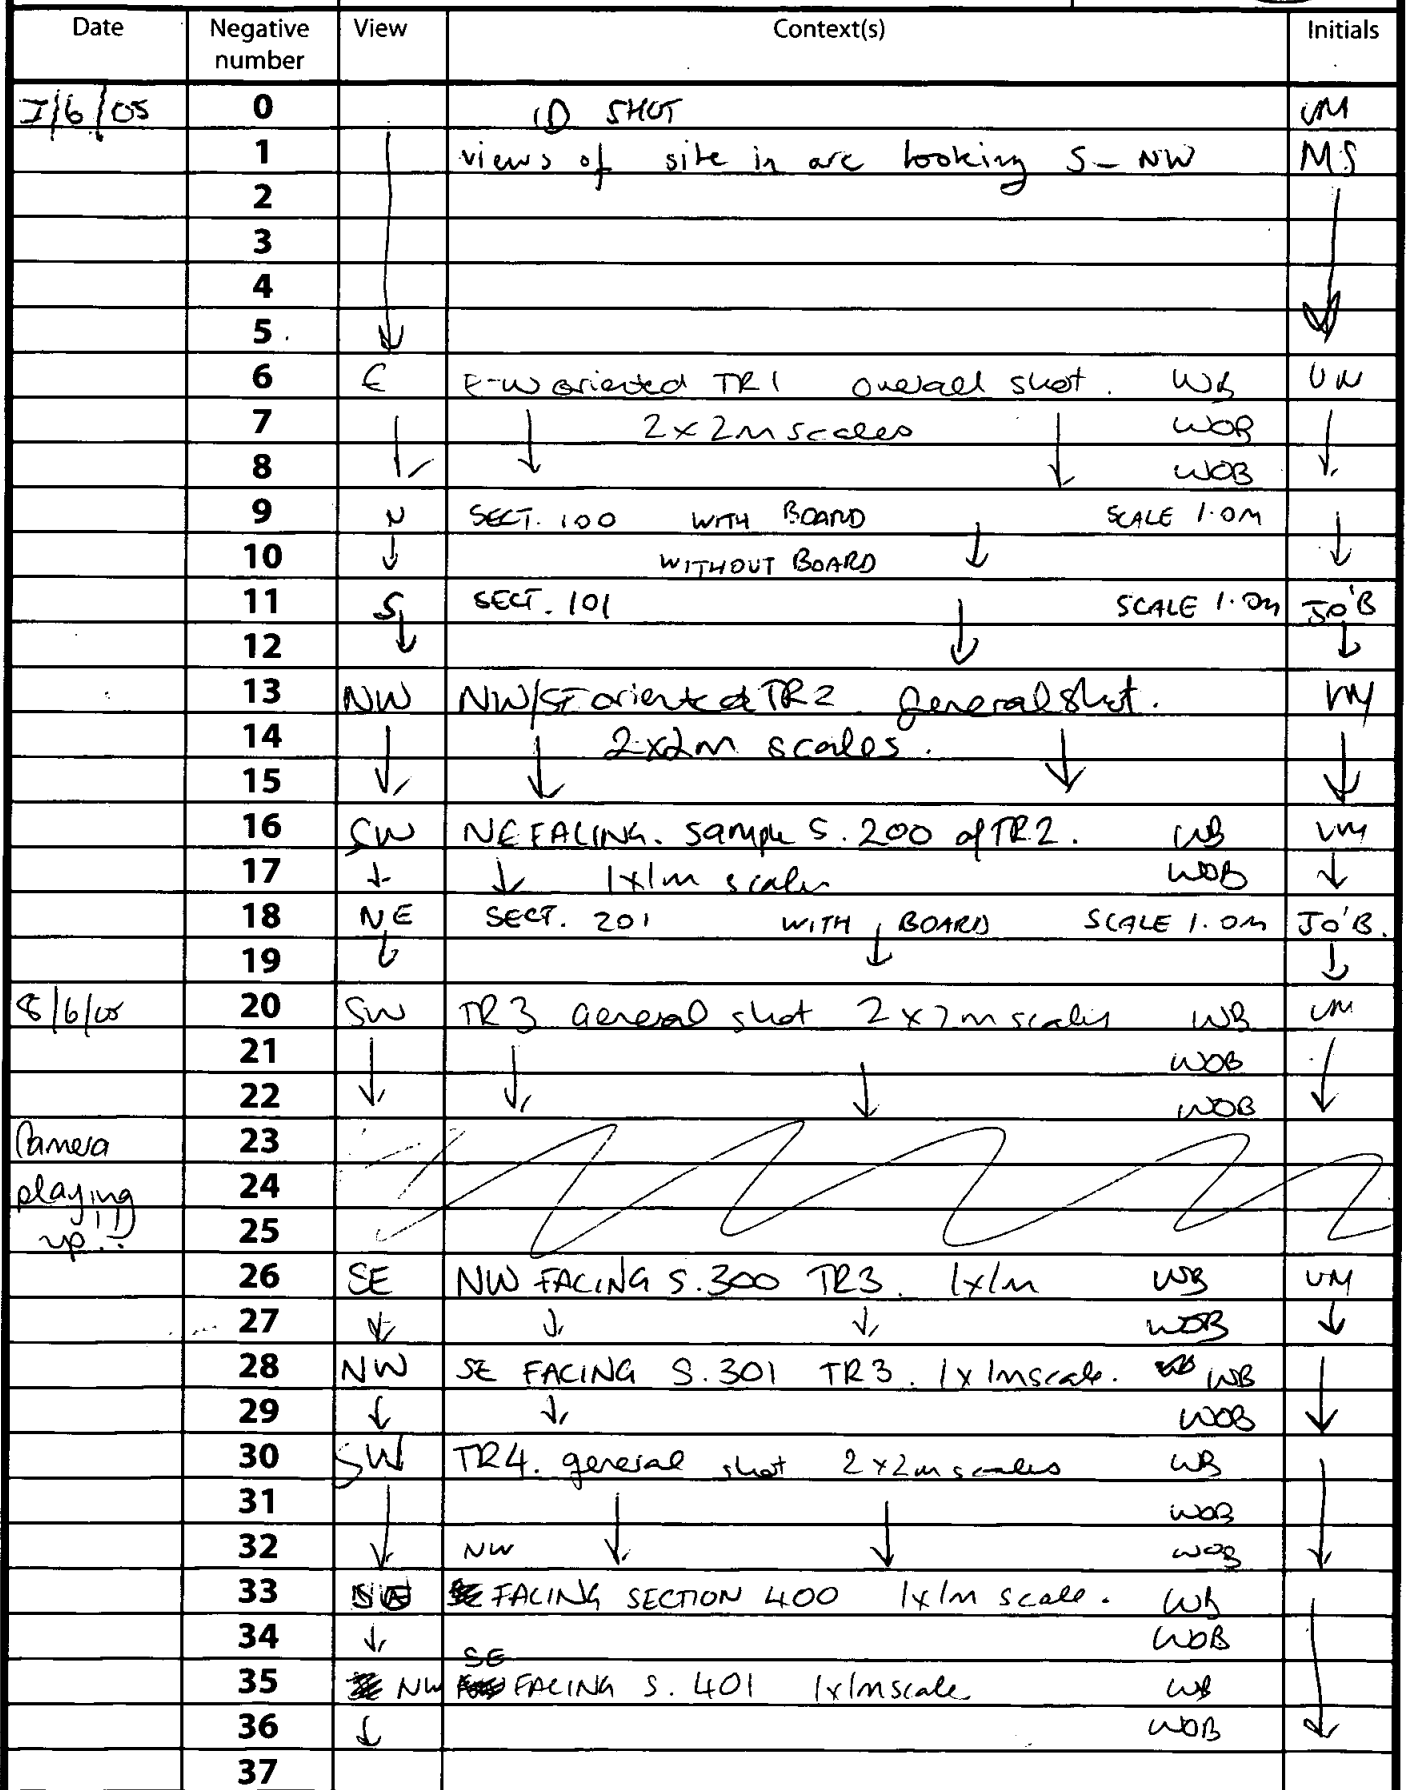 Date Negative number View Context(s) Initials
7/6/05 0 ID SHOT VM
1 views of site in arc looking S - NW MS
2
3
4
5
6 E E-W oriented TR1 overall shot. WB VM
7 2x2m scales WOB
8 WOB
9 N SECT. 100 WITH BOARD SCALE 1.0M
10 WITHOUT BOARD
11 S SECT. 101 SCALE 1.0m JO'B
12
13 NW NW/SE oriented TR2. general shot. VM
14 2x2m scales.
15
16 SW NE FACING. Sample S. 200 of TR2. WB VM
17 1x1m scales WOB
18 NE SECT. 201 WITH BOARD SCALE 1.0m JO'B.
19
8/6/05 20 SW TR3 general shot 2x2m scales WB VM
21 WOB
22 WOB
Camera 23
playing 24
up!! 25
26 SE NW FACING S.300 TR3. 1x1m WB VM
27 WOB
28 NW SE FACING S.301 TR3. 1x1m scale. WB
29 WOB
30 SW TR4. general shot 2x2m scales WB
31 WOB
32 WOB
33 NW FACING SECTION 400 1x1m scale. WB
34 WOB
35 NW SE FACING S. 401 1x1m scale WB
36 WOB
37